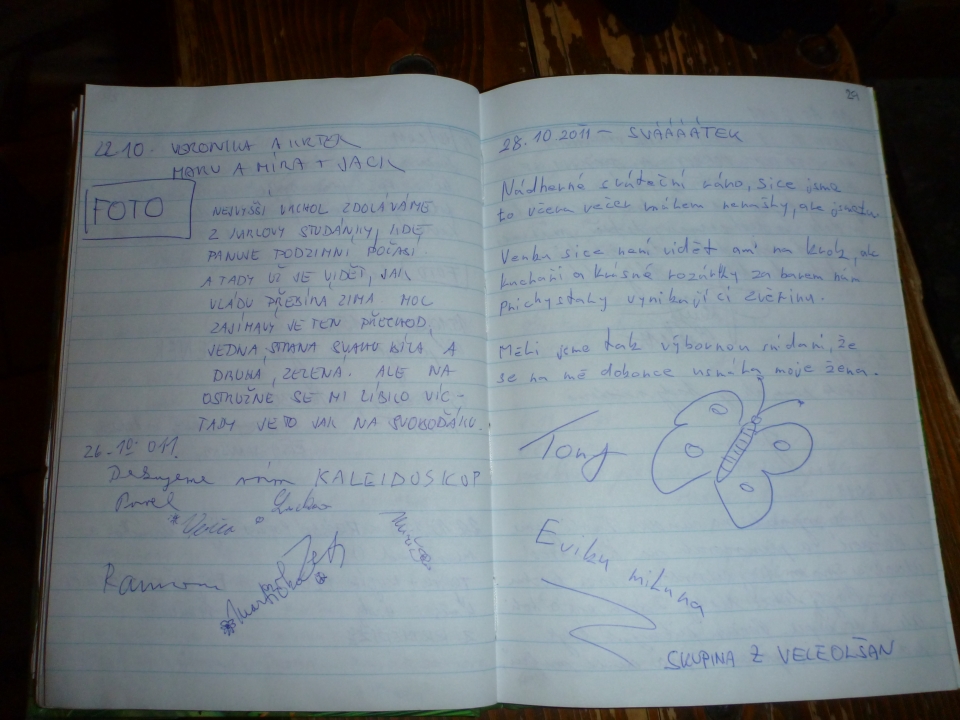 22.10. VERONIKA A KRTEK
MARU A MÍRA + JACK
FOTO
NEJVYŠŠÍ VRCHOL ZDOLÁVÁME
Z KARLOVY STUDÁNKY, KDE
PANUJE PODZIMNÍ POČASÍ
A TADY UŽ JE VIDĚT, JAK
VLÁDU PŘEBÍRÁ ZIMA MOC
ZAJÍMAVÝ JE TEN PŘECHOD,
JEDNA STRANA SVAHU BÍLÁ A
DRUHÁ, ZELENÁ. ALE NA
OSTRUŽNÉ SE MI LÍBILO VÍC -
TADY JE TO JAK NA SVOBODÁRU.
26.10. 011.
Děkujeme vám KALEIDOSKOP
Pavel
24
28.10.2011 - SVÁÁÁÁTEK
Nádherné sváteční ráno, sice jsme
to včera večer málem nenašly, ale jsme tu
Venku sice není vidět ani na krok, ale
kuchaři a krásné rozárky za barem nám
přichystaly vynikající zvěřinu.
Měli jsme tak výbornou snídani, že
se na mě dokonce usmála moje žena.
Tony
Evika
SKUPINA Z VELEOLŠAN